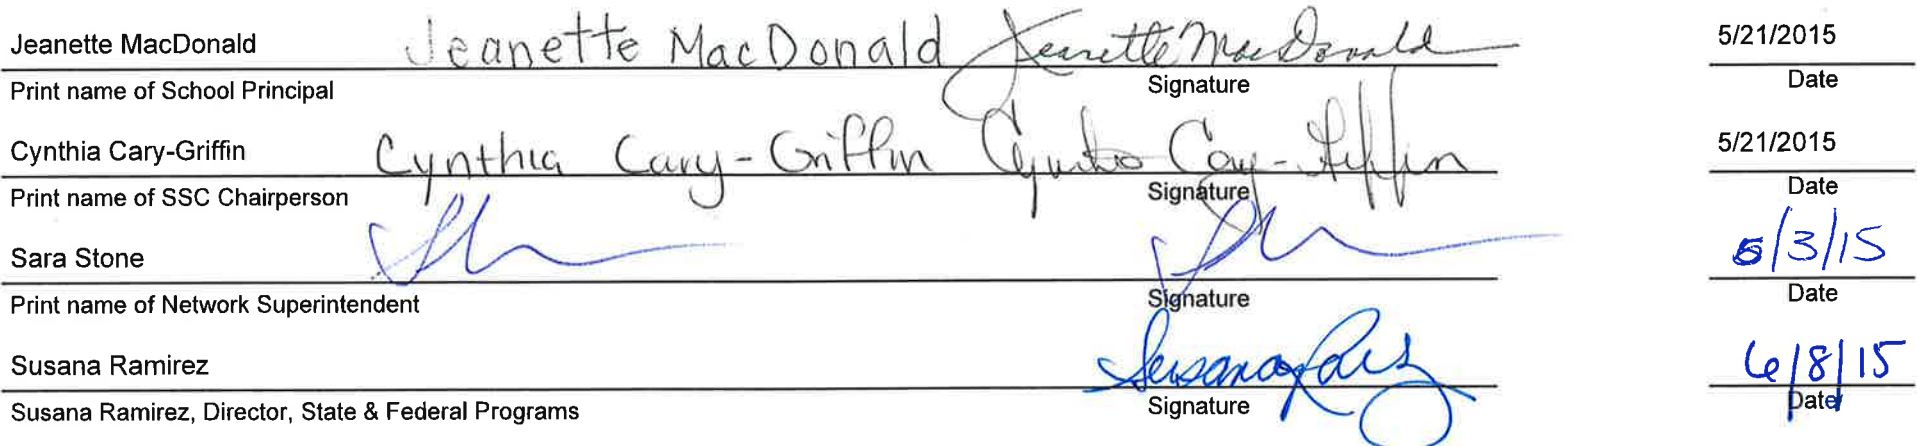 Jeanette MacDonald Jeanette MacDonald Jeanette MacDonald 5/21/2015
Print name of School Principal Signature Date
Cynthia Cary-Griffin Cynthia Cary-Griffin Cynthia Cary-Griffin 5/21/2015
Print name of SSC Chairperson Signature Date
Sara Stone /3/15
Print name of Network Superintendent Signature Date
Susana Ramirez Susana Ramirez 6/8/15
Susana Ramirez, Director, State & Federal Programs Signature Date